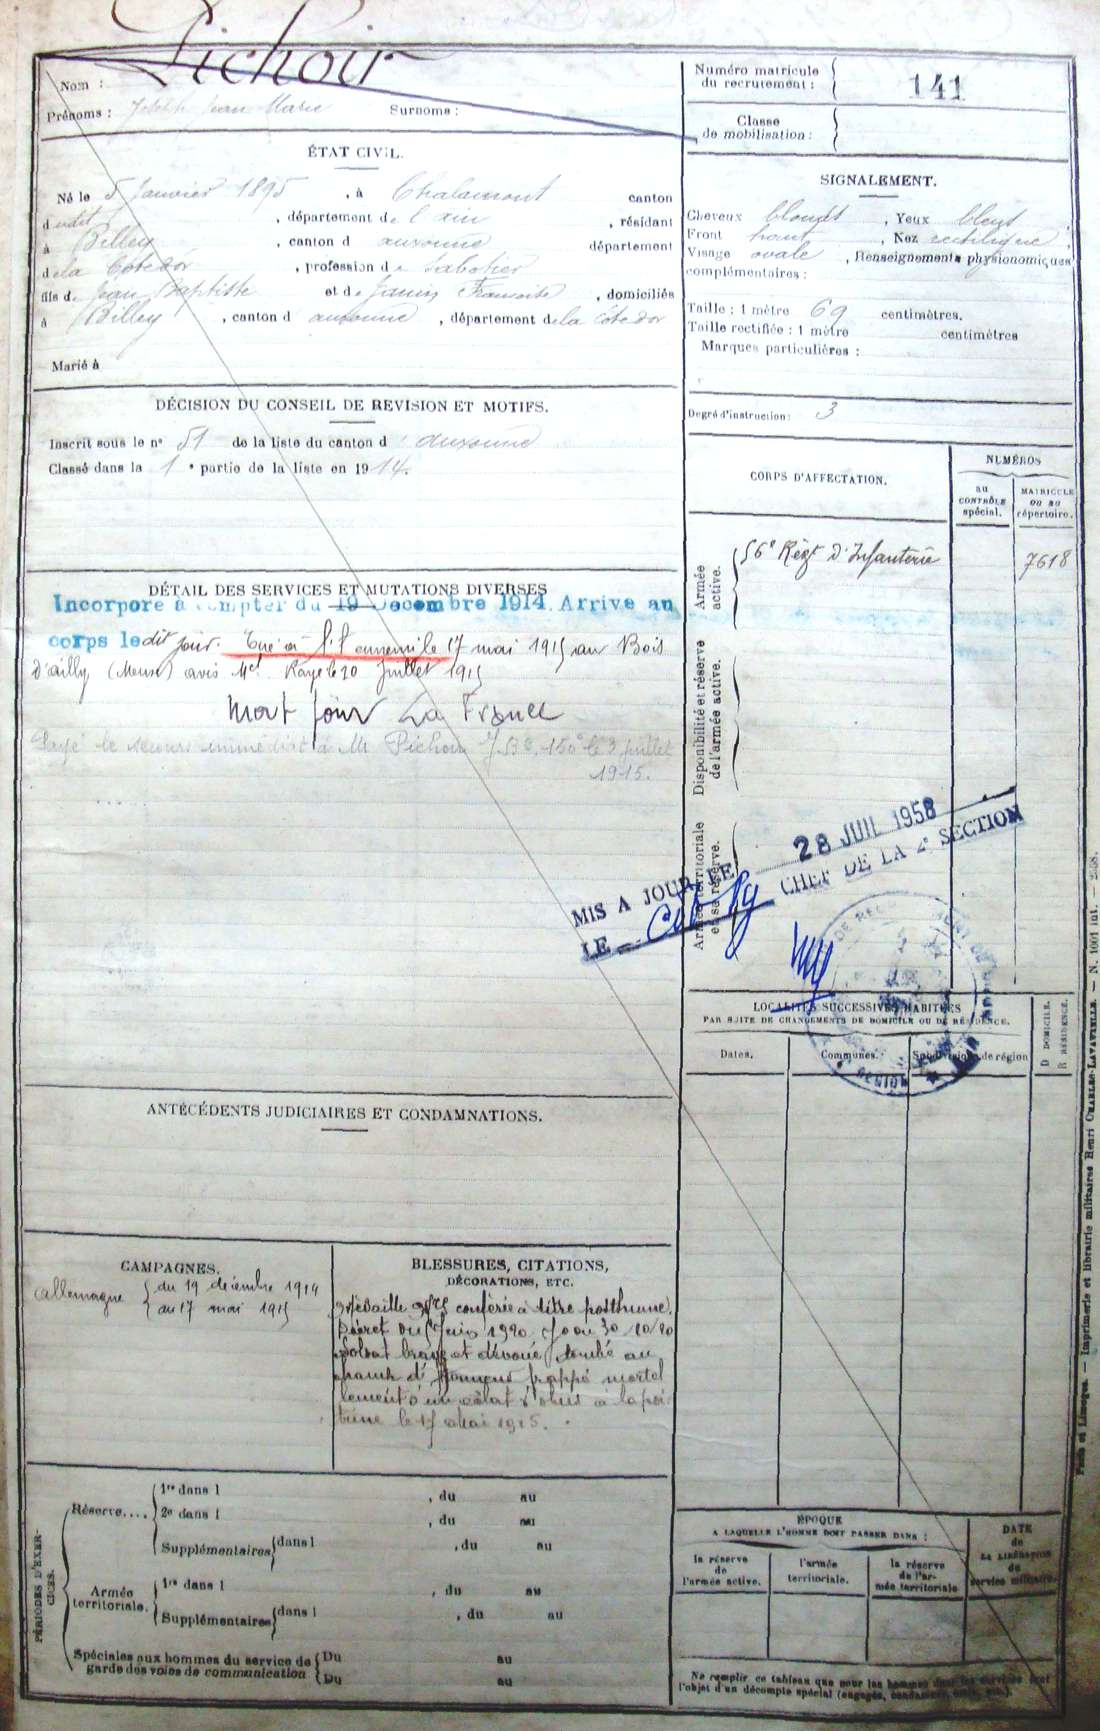 Nom : Pichoir
Prénoms : Joseph Jean Marie Surnoms :
Numéro matricule
du recrutement : 141
Classe
de mobilisation :
ÉTAT CIVIL.
Né le 5 Janvier 1895, à Chalamont canton
dudit, département de l'ain, résidant
à Billey, canton d'auxonne département
de la Côte d'or, profession de Sabotier
fils de Jean Baptiste et de Janin Francoise, domiciliés
à Billey, canton d'auxonne, département de la côte d'or
Marié à
SIGNALEMENT.
Cheveux blonds, Yeux bleus,
Front haut, Nez rectiligne,
Visage ovale, Renseignements physionomiques
complémentaires :
Taille : 1 mètre 69 centimètres.
Taille rectifiée : 1 mètre centimètres
Marques particulières :
Degré d'instruction : 3
DÉCISION DU CONSEIL DE REVISION ET MOTIFS.
Inscrit sous le n° 51 de la liste du canton d'auxonne
Classé dans la 1e partie de la liste en 1914.
CORPS D'AFFECTATION.
NUMÉROS
au
CONTRÔLE
spécial.
MATRICULE
ou au
répertoire.
Armée
active.
56e Régt d'Infanterie 7618
Disponibilité et réserve
de l'armée active.
Armée territoriale
et sa réserve.
DÉTAIL DES SERVICES ET MUTATIONS DIVERSES
Incorporé à compter du 19 Décembre 1914. Arrivé au
corps le dit jour. Tué à l'ennemi le 17 mai 1915 au Bois
d'ailly (Meuse) avis Mel 20 Juillet 1915
Mort pour La France
Payé le secours immédiat à M. Pichoir J Bte, 150f le 3 juillet
1915.
MIS A JOUR LE 28 JUIL 1958
LE CHEF DE LA 2e SECTION
LOCALITÉS SUCCESSIVES HABITÉES
PAR SUITE DE CHANGEMENTS DE DOMICILE OU DE RÉSIDENCE.
Dates.
Communes.
Subdivisions de région
D DOMICILE.
R RÉSIDENCE.
ANTÉCÉDENTS JUDICIAIRES ET CONDAMNATIONS.
CAMPAGNES.
allemagne du 19 décembre 1914
au 17 mai 1915
BLESSURES, CITATIONS,
DÉCORATIONS, ETC.
Médaille conférée à titre posthume.
Décret du Juin 1920 Jo du 30/10/20
Soldat brave et dévoué, tombé au
champ d'Honneur frappé mortel
lement d'un eclat d'obus à la poi
trine le 17 Mai 1915.
PÉRIODES D'EXER-
CICES.
Réserve....
1re dans l , du au
2e dans l , du au
Supplémentaires dans l , du au
Armée
territoriale.
1re dans l , du au
Supplémentaires dans l , du au
Spéciales aux hommes du service de
garde des voies de communication
Du au
Du au
ÉPOQUE
A LAQUELLE L'HOMME DOIT PASSER DANS :
la réserve
de
l'armée active.
l'armée
territoriale.
la réserve
de l'ar-
mée territoriale
DATE
de
LA LIBÉRATION
du
service militaire.
Ne remplir ce tableau que pour les hommes dont les services font
l'objet d'un décompte spécial (engagés, condamnés, omis, etc.).
Paris et Limoges. — Imprimerie et librairie militaires Henri CHARLES-LAVAUZELLE. — N. 1001 int. —